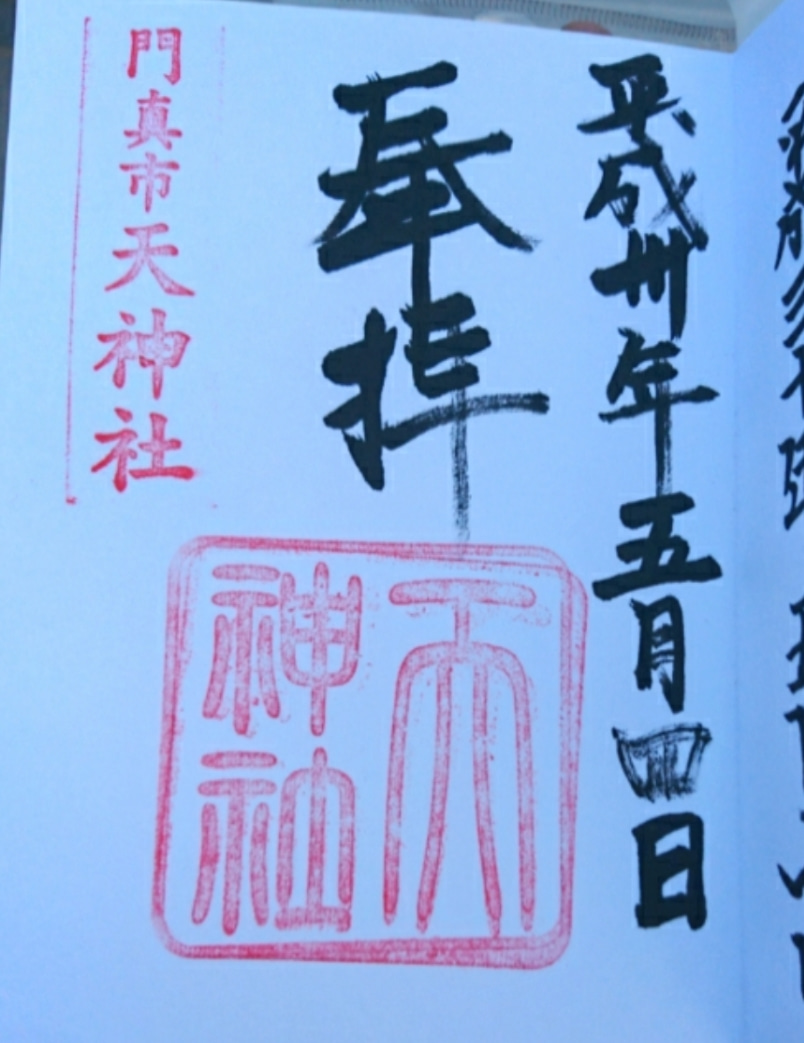 平成卅年五月四日
奉拝
天
神社
門真市天神社